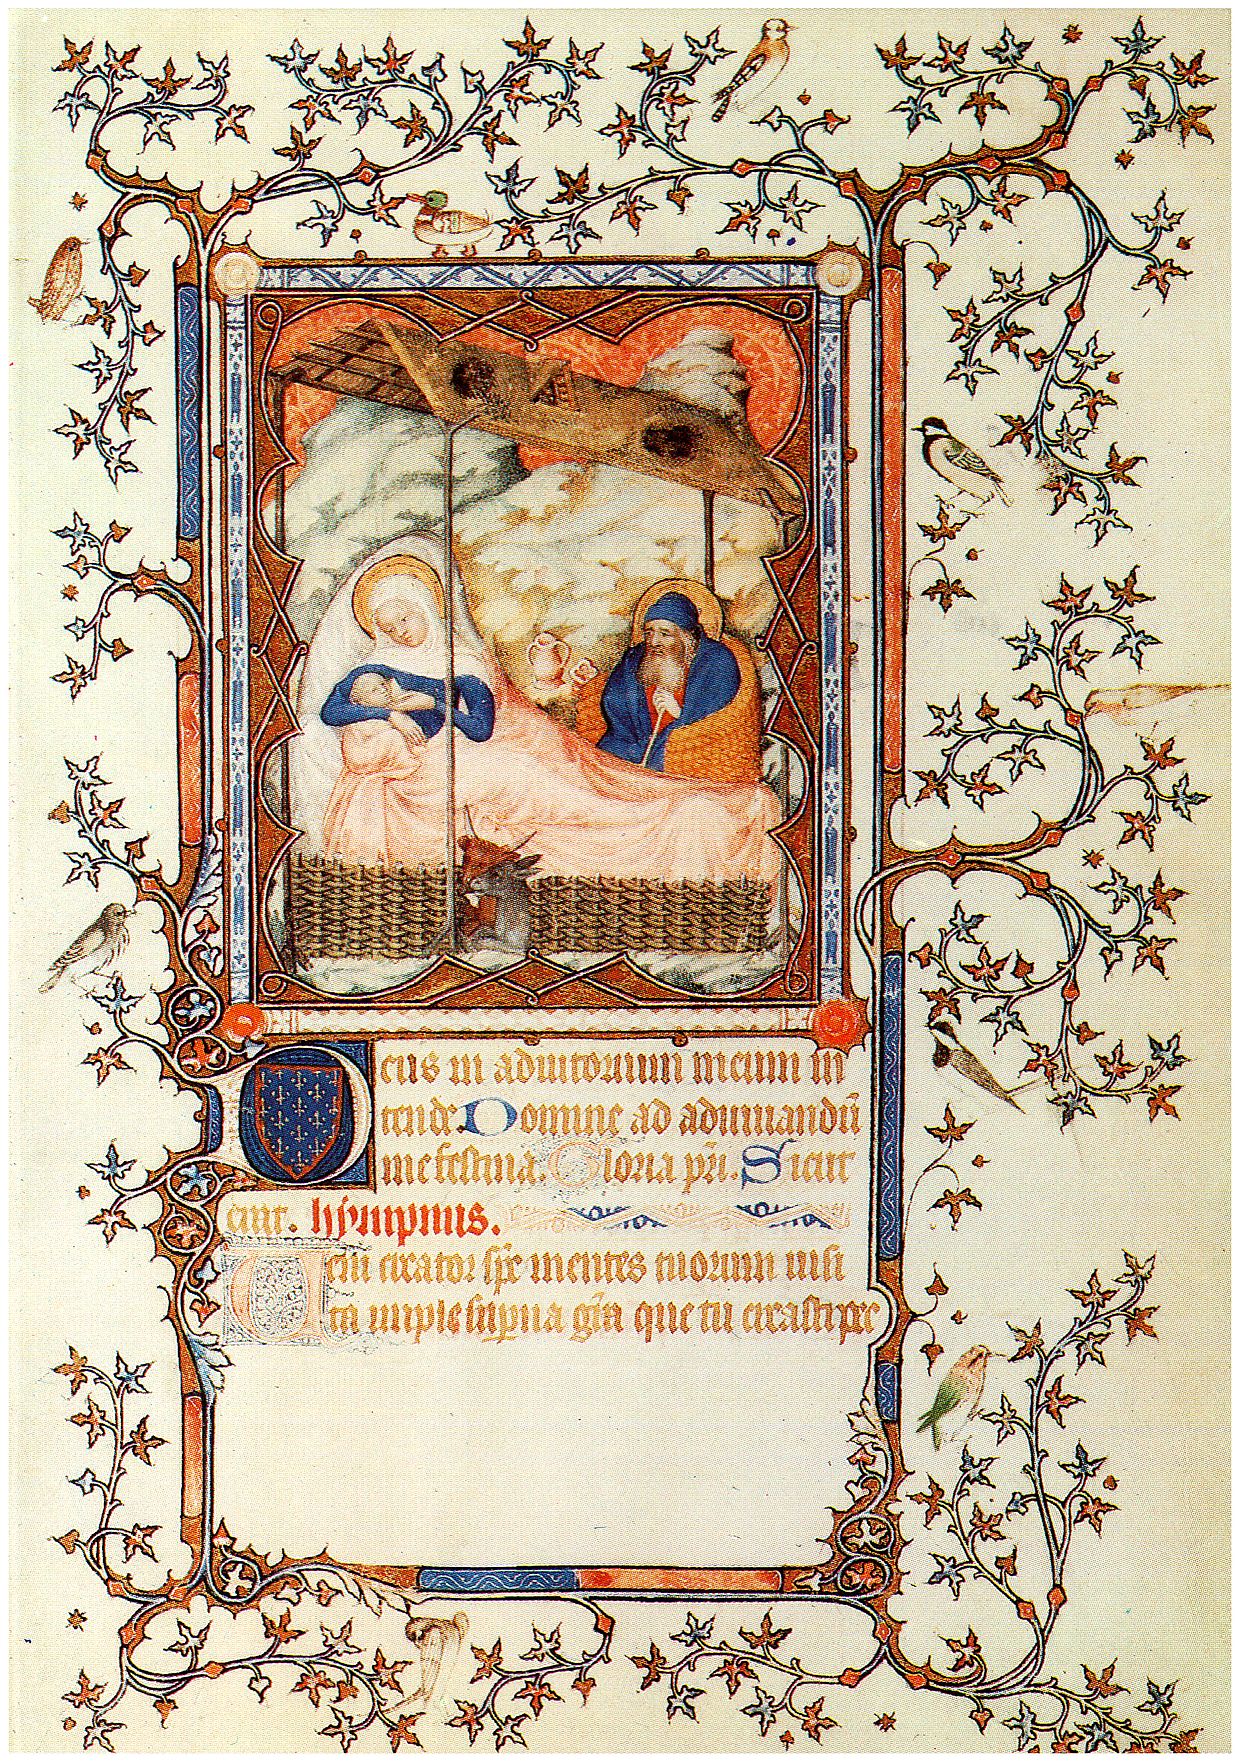 Deus in adiutorium meum in
tende Domine ad adiuuandū
me festina. Gloria pr̄i. Sicut
erat. hympnus.
Veni creator sp̄e mentes tuorum uisi
ta imple suꝑna gr̄a que tu creasti pec